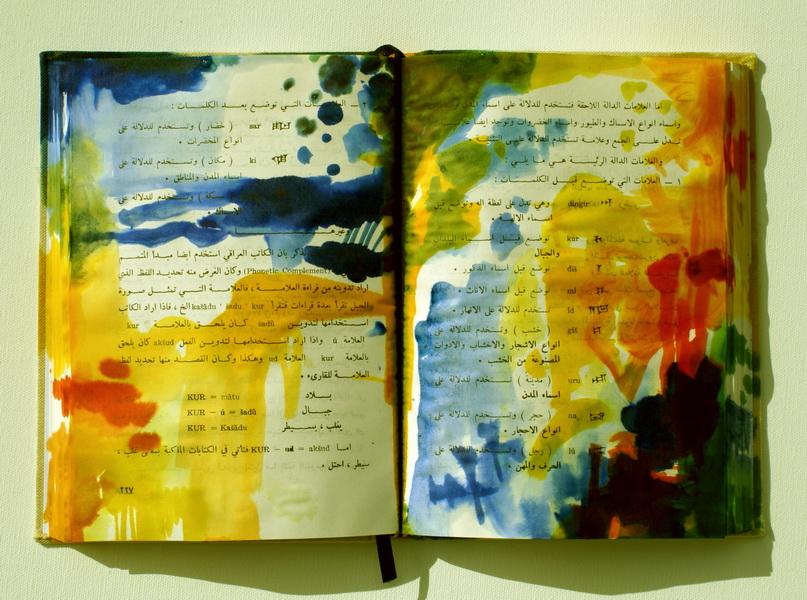 اما العلامات الدالة اللاحقة فتستخدم للدلالة على اسماء المدن
واسماء انواع الاسماك والطيور واسماء الخضروات وتوجد ايضا
تدل على الجمع وعلامة تستخدم للدلالة على التثنية .
والعلامات الدالة الرئيسة هي ما يلي :
١ — العلامات التي توضع قبل الكلمات :
dingir وهي تدل على لفظة اله وتوضع قبل
اسماء الالهة .
kur توضع قبل اسماء البلدان
والجبال
diš توضع قبل اسماء الذكور .
mí توضع قبل اسماء الاناث .
íd تستخدم للدلالة على الانهار .
giš ( خشب ) وتستخدم للدلالة على
انواع الاشجار والاخشاب والادوات
المصنوعة من الخشب .
uru ( مدينة ) تستخدم للدلالة على
اسماء المدن
na ( حجر ) وتستخدم للدلالة على
انواع الاحجار .
lú ( رجل ) وتستخدم للدلالة على
الحرف والمهن .
٢ — العلامات التي توضع بعد الكلمات :
sar ( خضار ) وتستخدم للدلالة على
انواع الخضرات .
ki ( مكان ) وتستخدم للدلالة على
اسماء المدن والمناطق .
سمكة ) وتستخدم للدلالة على
الاسماك .
وغيرها
بان الكاتب العراقي استخدم ايضا مبدأ المتمم
(Phonetic Complement) وكان الغرض منه تحديد اللفظ الذي
اراد تدوينه من قراءة العلامة ، فالعلامة التي تمثل صورة
الجبل تقرأ بعدة قراءات فتقرأ kur ' šadu ' kašādu الخ ، فاذا اراد الكاتب
استخدامها لتدوين šadû كان يلحق بالعلامة kur
العلامة ú واذا اراد استخدامها لتدوين الفعل akšud كان يلحق
بالعلامة kur العلامة ud وهكذا وكان القصد منها تحديد لفظ
العلامة للقارىء .
KUR = mātu بلاد
KUR - ú = šadû جبال
KUR = Kašādu يغلب ، يسيطر
اما KUR - ud = akšud فتأتي في الكتابات الملكية بمعنى غلب ،
سيطر ، احتل .
٢٢٧